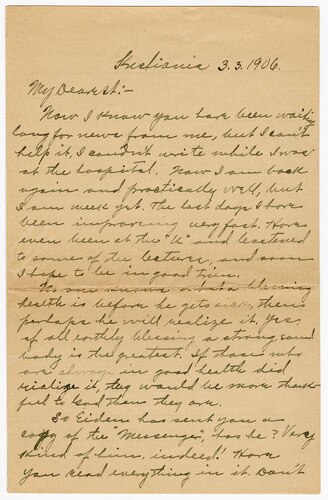 Kristiania 3.3.1906.
My Dearest:-
Now I know you have been waiting
long for news from me, but I can't
help it, I couldn't write while I was
at the hospital. Now I am back
again and practically well, but
I am week yet. The last days I have
been improving very fast. Have
even been at the "U" and leastened
to some of the lectures, and soon
I hope to be in good trim.
No one knows what a blessing
health is before he gets sick, then
perhaps he will realize it. Yes,
of all earthly blessing a strong sound
body is the greatest. If those who
are always in good health did
rialize it, they would be more thank-
ful to God then they are.
So Eidem has sent you a
copy of the "Messenger", has he? Very
kind of him, indeed! Have
you read everything in it. Don't